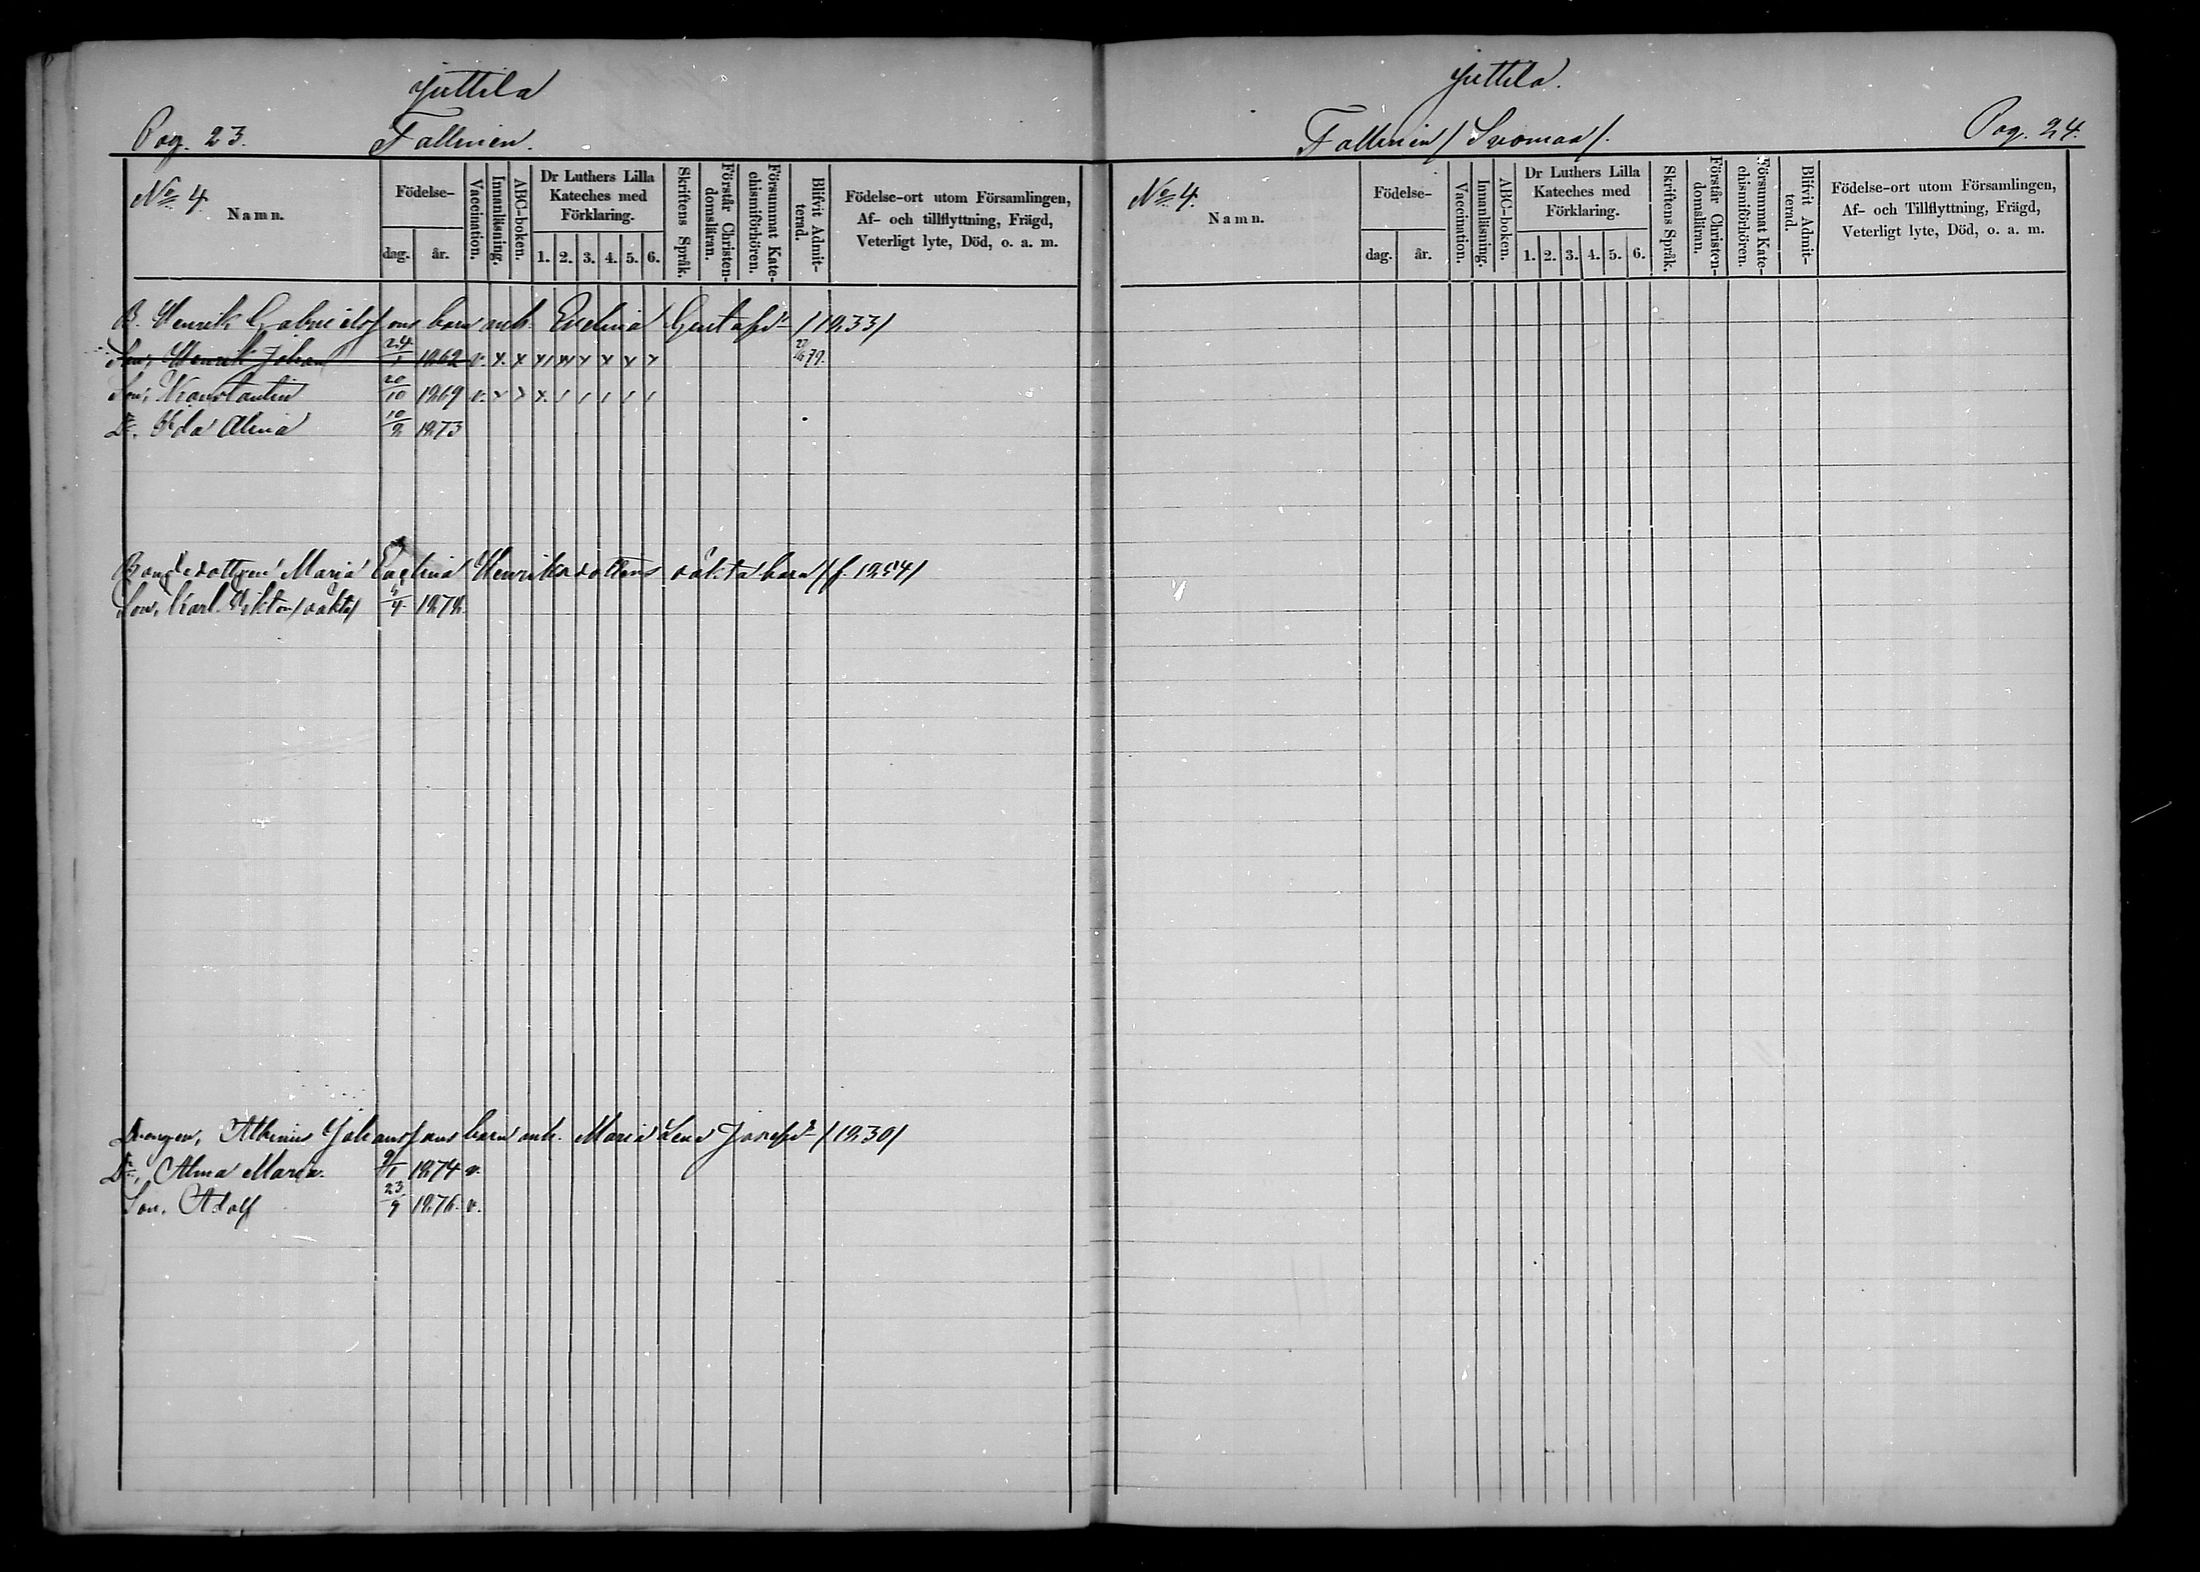 Juttila
Pag. 23. Fallinien.
No 4.
Namn.
Födelse-
dag. år.
Vaccination.
Innanläsning.
ABC-boken.
Dr Luthers Lilla Kateches med Förklaring.
1. 2. 3. 4. 5. 6.
Skriftens Språk.
Förstår Christendomsläran.
Försummat Katechismiförhören.
Blifvit Admitterad.
Födelse-ort utom Församlingen,
Af- och tillflyttning, Frägd,
Veterligt lyte, Död, o. a. m.
B. Henrik Gabrielssons barn enk. Evelina Gustafsdr /1833/
Son, Henrik Johan 24/1 1862 v. x x x x x x x x 79.
Son, Konstantin 20/10 1869 v. x x x
Dr. Ida Alina 10/2 1873
Bondedottren Maria Evelina Henriksdotters oäkta barn /f. 1854/
Son, Karl Viktor /oäkta/ 1878
Drängen, Albinus Johanssons barn enk. Maria Lena Josefsdr /1830/
Dr, Alma Maria. 9/1 1874 v.
Son, Adolf 23/9 1876 v.
Juttila.
Fallinien / Svomas /. Pag. 24.
No 4.
Namn.
Födelse-
dag. år.
Vaccination.
Innanläsning.
ABC-boken.
Dr Luthers Lilla Kateches med Förklaring.
1. 2. 3. 4. 5. 6.
Skriftens Språk.
Förstår Christendomsläran.
Försummat Katechismiförhören.
Blifvit Admitterad.
Födelse-ort utom Församlingen,
Af- och Tillflyttning, Frägd,
Veterligt lyte, Död, o. a. m.